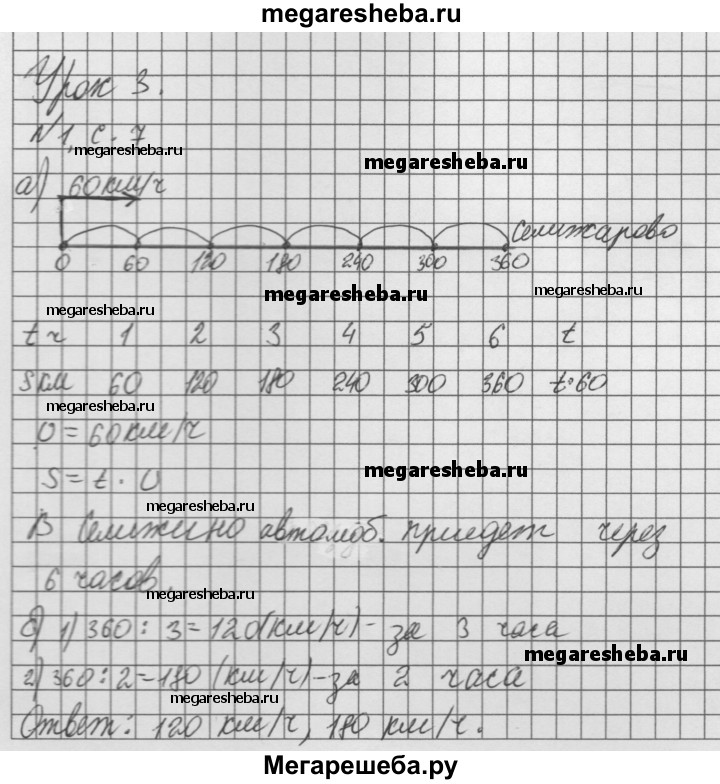 megaresheba.ru
Урок 3.
N1, с. 7
megaresheba.ru
megaresheba.ru
а) 60км/ч
Селижарово
0 60 120 180 240 300 360
megaresheba.ru
megaresheba.ru
megaresheba.ru
t ч 1 2 3 4 5 6 t
S км 60 120 180 240 300 360 t·60
megaresheba.ru
υ = 60км/ч
megaresheba.ru
S = t · υ
megaresheba.ru
В Селижино автомоб. приедет через
6 часов.
megaresheba.ru
б) 1) 360 : 3 = 120(км/ч) - за 3 часа
megaresheba.ru
2) 360 : 2 = 180 (км/ч) - за 2 часа
megaresheba.ru
Ответ: 120 км/ч, 180 км/ч.
Мегарешеба.ру